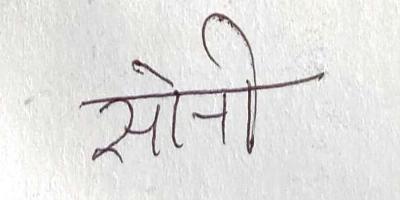 सोनी